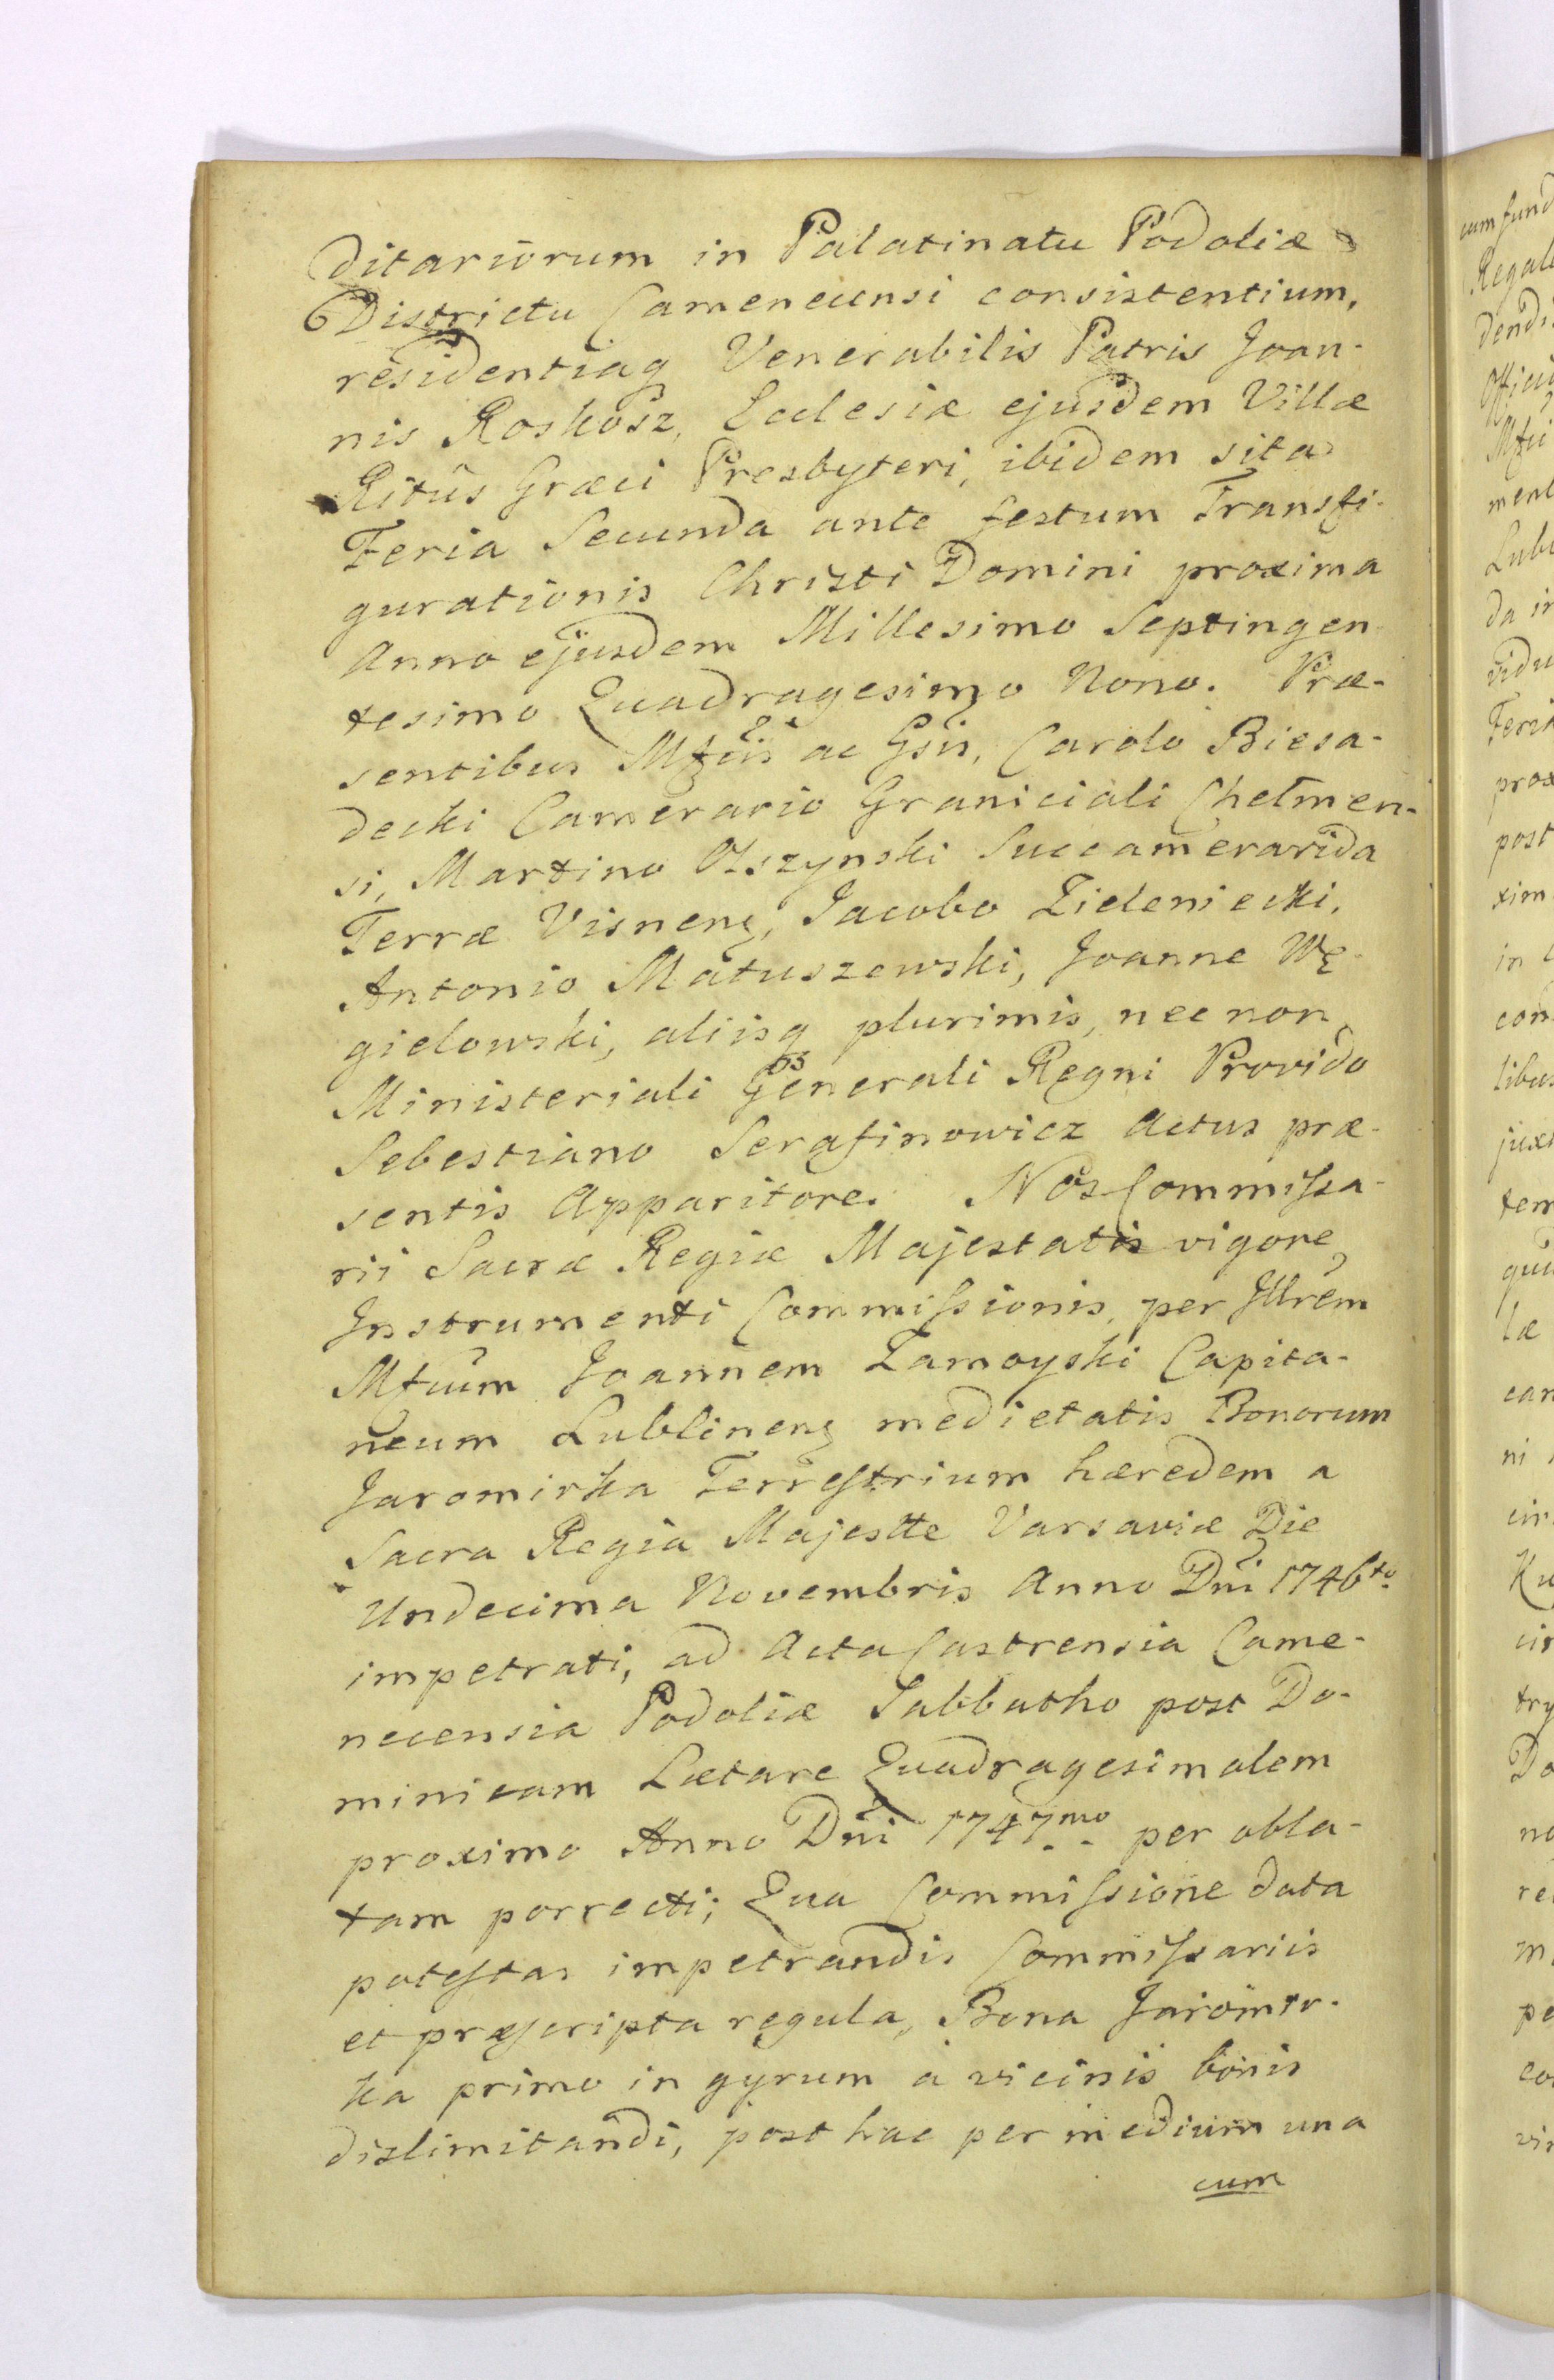 ditariorum in Palatinatu Podoliæ
Districtu Camenecensi consistentium,
residentiaq Venerabilis Patris Joan-
nis Roskosz, Ecclesiæ ejusdem Villæ
Ritûs Græci Presbyteri, ibidem sita
Feria Secunda ante festum Transfi-
gurationis Christi Domini proxima
Anno ejusdem Millesimo Septingen
tesimo Quadragesimo Nono. Præ-
sentibus Mfcis ac Gsis, Carolo Biesa-
decki Camerario Graniciali Chelmen-
si, Martino Olszynski Succamerarida
Terræ Visnenș, Jacobo Zieleniecki,
Antonio Matuszewski, Joanne Wę-
gielowski, aliisq plurimis, nec non
Ministeriali Generali Regni Provido
Sebestiano Serafinowicz Actus præ-
sentis Apparitore. Nos Commissa-
rii Sacræ Regiæ Majestatis vigore
Instrumenti Commissionis, per Jllrem
Mfcum Joannem Zamoyski Capita-
neum Lublinenș medietatis Bonorum
Jaromirka Terrestrium hæredem a
Sacra Regia Majestte Varsaviæ Die
Undecima Novembris Anno Dni 1746to
impetrati, ad Acta Castrensia Came-
necensia Podoliæ Sabbatho post Do-
minicam Lætare Quadragesimalem
proximo Anno Dni 1747mo per obla-
tam porrecti; Qua Commissione data
potestas impetrandis Commissariis
et præscripta regula, Bona Jaromir-
ka primo in gyrum à vicinis bonis
dislimitandi, post hac per medium una
cum